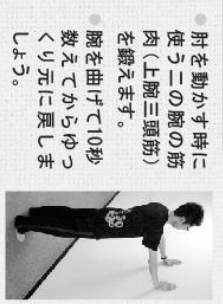 肘を動かす時に
使う二の腕の筋
肉（上腕三頭筋）
を鍛えます。
腕を曲げて10秒
数えてからゆっ
くり元に戻しま
しょう。